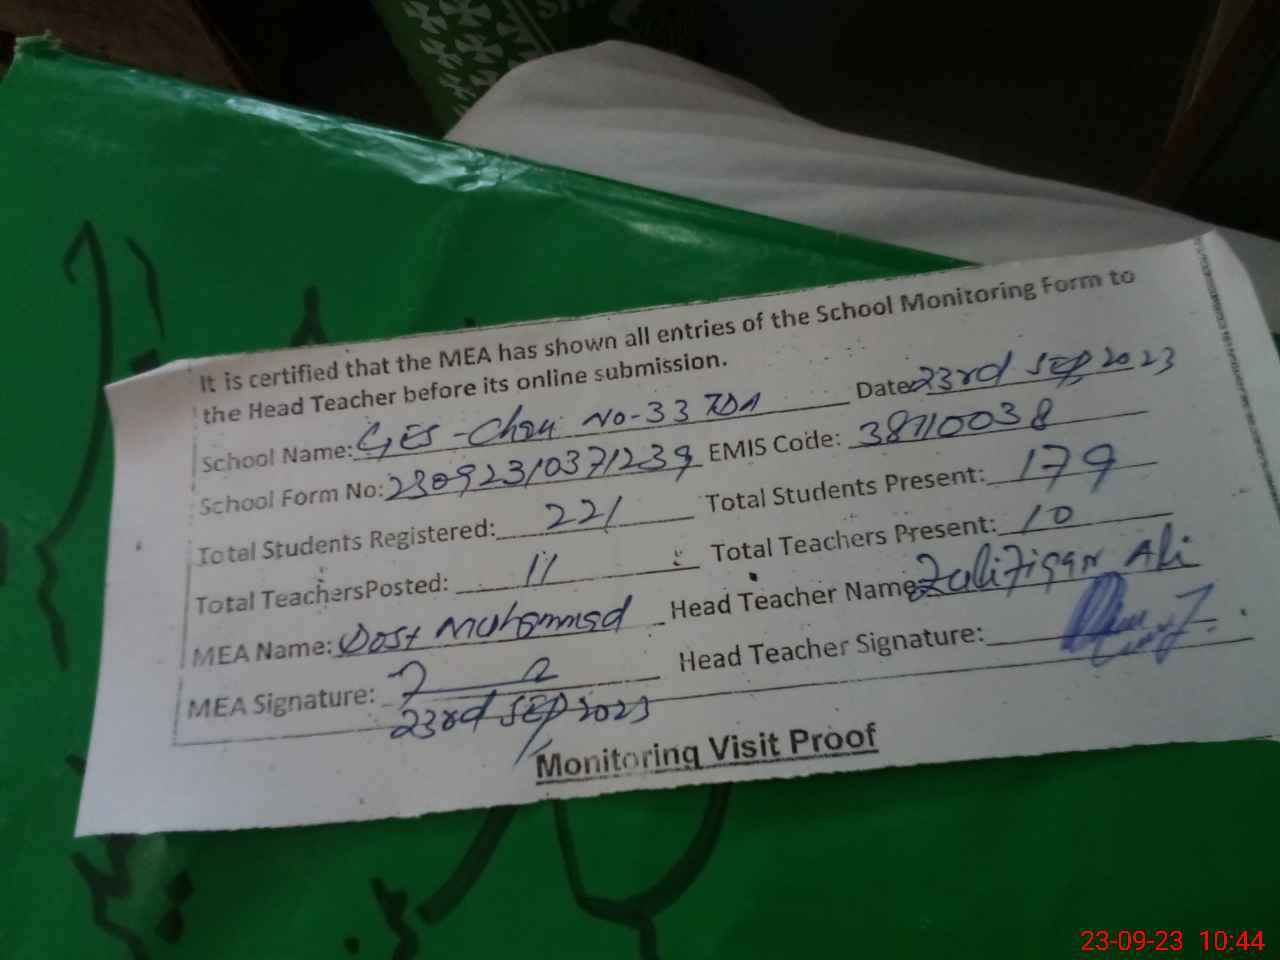 It is certified that the MEA has shown all entries of the School Monitoring Form to
the Head Teacher before its online submission.
School Name: GES - Chak No-33 TDA Date 23rd SEP 2023
School Form No: 23092310371239 EMIS Code: 38710038
Total Students Registered: 221 Total Students Present: 179
Total TeachersPosted: 11 Total Teachers Present: 10
MEA Name: Dost Muhammad Head Teacher Name Zulifiqar Ali
MEA Signature: Head Teacher Signature:
23rd SEP 2023
Monitoring Visit Proof
23-09-23 10:44